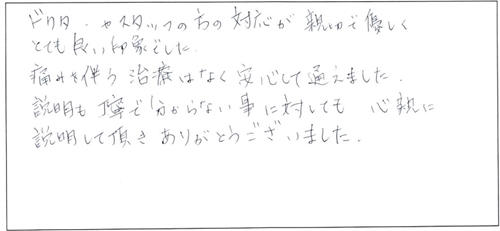 ドクター・やスタッフの方の対応が親切で優しく
とても良い印象でした。
痛みを伴う治療はなく安心して通えました。
説明も丁寧で分からない事に対しても 心親に
説明して頂きありがとうございました。